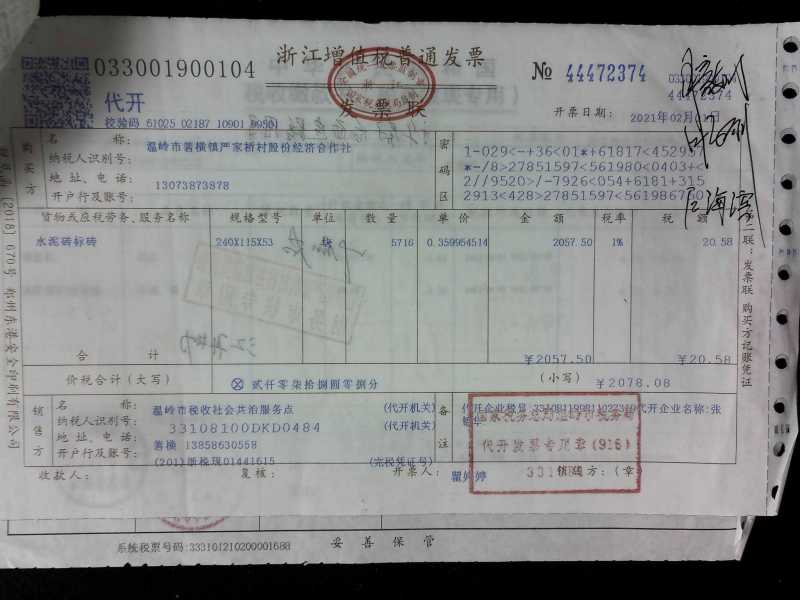 浙江增值税普通发票
033001900104
No 44472374
代开
发票联
校验码 61025 02187 10901 9950
开票日期: 2021年02月01日
购买方
名 称: 温岭市箬横镇严家桥村股份经济合作社
纳税人识别号:
地址、电话: 13073873878
开户行及账号:
密码区
1-029<-+36<01*+61817<452957
*-/8>27851597<561980<0403+<
2//9520>/-7926<054+6181+315
2913<428>27851597<561986760
货物或应税劳务、服务名称 规格型号 单位 数量 单价 金额 税率 税额
水泥砖标砖 240X115X53 块 5716 0.359954514 2057.50 1% 20.58
合 计 ¥2057.50 ¥20.58
价税合计(大写) ⊗ 贰仟零柒拾捌圆零捌分 (小写) ¥2078.08
销售方
名 称: 温岭市税收社会共治服务点 (代开机关)
纳税人识别号: 33108100DKD0484 (代开机关)
地址、电话: 箬横 13858630558
开户行及账号: (201)浙税现01441615 (完税凭证号)
备注
代开企业名称:张
国家税务总局温岭市税务局
代开发票专用章(916)
收款人: 复核: 开票人: 瞿婷婷 销售方:(章)
第二联:发票联 购买方记账凭证
[2018]670号 郑州东港安全印刷有限公司
系统税票号码:333101210200001688 妥善保管